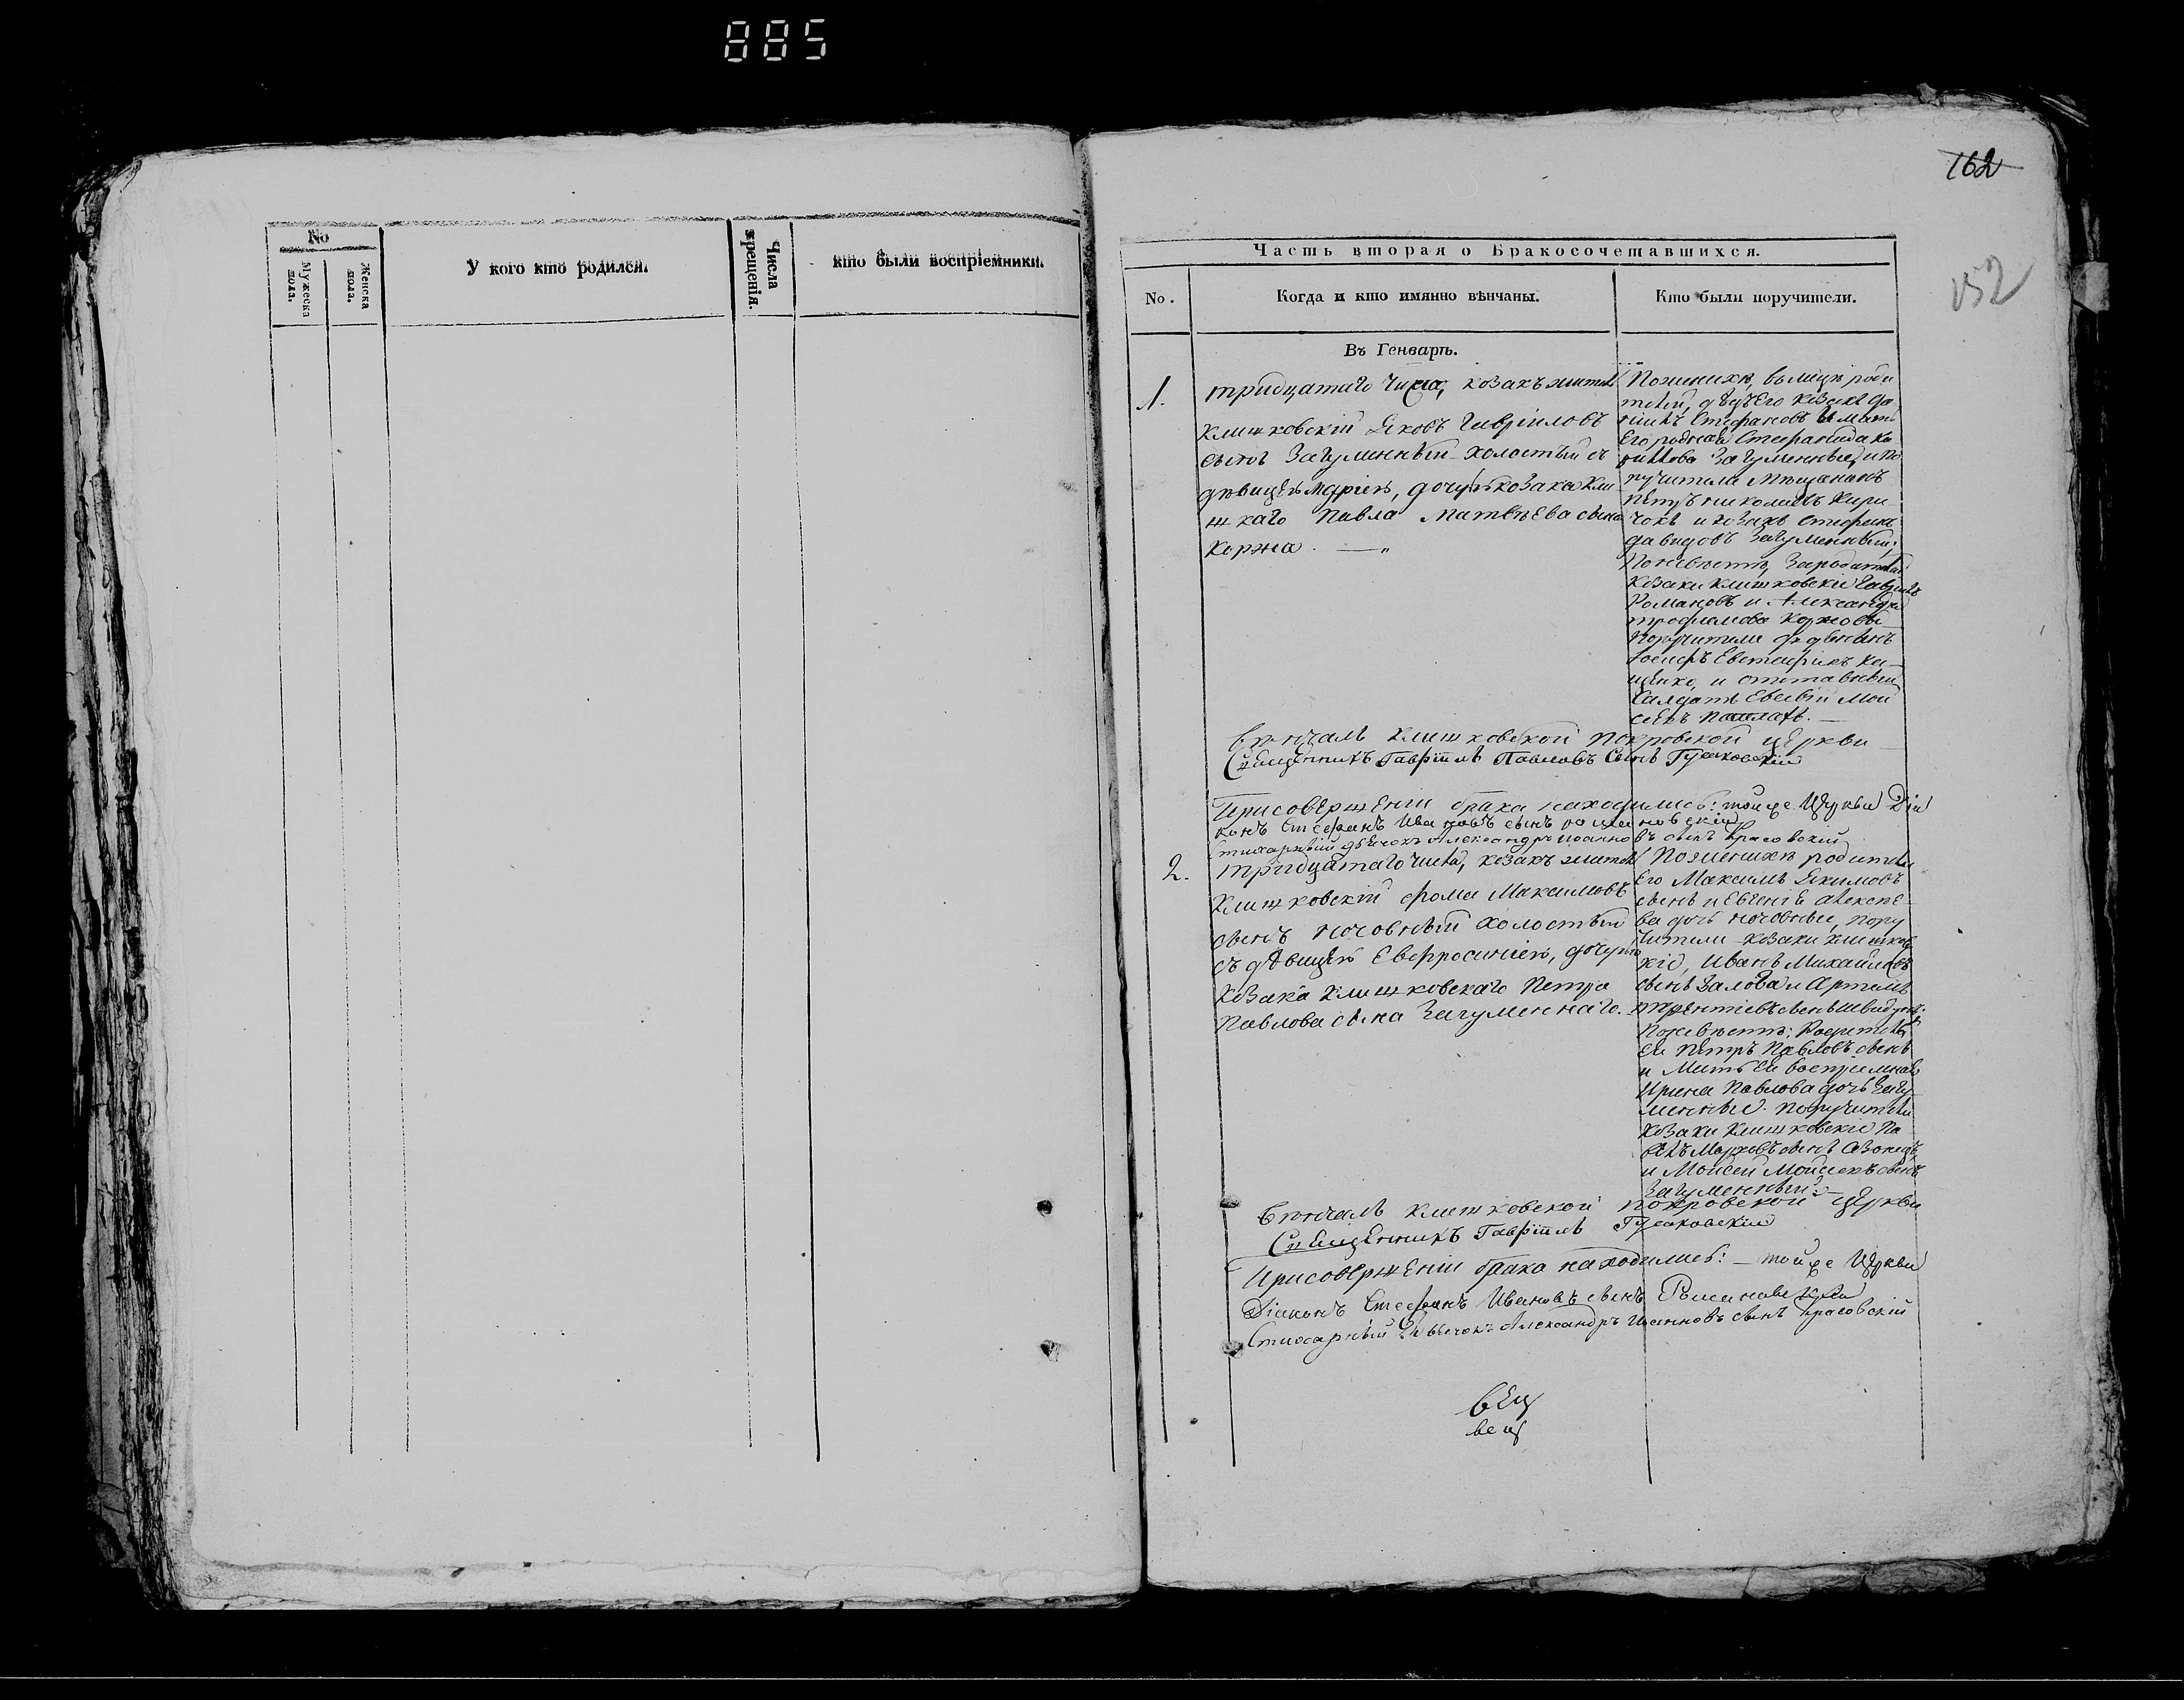 885
162
152
No
Мужеска пола.
Женска пола.
У кого кто родился.
Числа крещенія.
кто были воспріемники.
Часть вторая о Бракосочетавшихся.
No.
Когда и кто имянно вѣнчаны.
Кто были поручители.
Въ Генварѣ.
1.
тридцатаго числа, козакъ жител
клишковскій Яковъ Гавріиловъ
сынъ Загуменный холостый съ
дѣвицею Маріею, дочерью козака Кли
шкаго Павла Матвѣева сына
Коржа.
По женихѣ, вмѣсто роди
телей, дядя Его козакъ
Стефановъ и мать
Его родная Стефанида
Загуменные, и по
ручители мѣщанинъ
Петръ Кири
чокъ и козакъ Стефанъ
Давидовъ Загуменный;
По невѣстѣ, за родителей
козаки клишковскіе Гавріилъ
Романовъ и Александра
Трофимова Коржовы
Поручители
Іосифъ Евстафіевъ
и отставный
Салдатъ Евсевій Мои
сеевъ
Вѣнчалъ клишковской покровской церкви
Священникъ Гавріилъ Павловъ Сынъ Гусаковскій
При совершеніи брака находились: той же Церкви Діа
конъ Стефанъ Ивановъ сынъ
Стихарный дьячокъ Александръ Іоанновъ сынъ Красовскій
2.
тридцатаго числа, козакъ жител
Клишковскій Фома Максимовъ
сынъ холостый
съ дѣвицею Евфросиніею, дочерью
козака клишковскаго Петра
Павлова сына Загуменнаго.
По женихѣ родители
Его Максимъ Екимовъ
сынъ и Евгенія Алексѣе
ва дочь, пору
чители козаки клишков
кіе, Иванъ Михайловъ
сынъ и Артемъ
Терентіевъ сынъ
По невѣстѣ: Родитель
Ея Петръ Павловъ сынъ
и Мать Ея воспріемная
Ирина Павлова дочь Загу
менные. поручители
козаки клишковскіе Па
велъ Марковъ сынъ
и Моисей Моисеевъ сынъ
Загуменный.
Вѣнчалъ клишковской покровской церкви
Священникъ Гавріилъ Гусаковскій
При совершеніи брака находились: той же Церкви
Діаконъ Стефанъ Ивановъ сынъ
Стихарный Дьячокъ Александръ Іоанновъ сынъ Красовскій